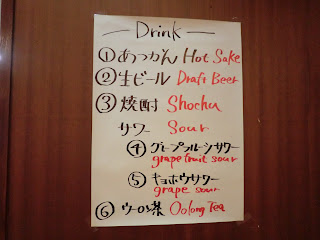 — Drink —
①あつかん Hot Sake
②生ビール Draft Beer
③焼酎 Shochu
サワー Sour
④グレープフルーツサワー
grape fruit sour
⑤キョホウサワー
grape sour
⑥ウーロン茶 Oolong Tea